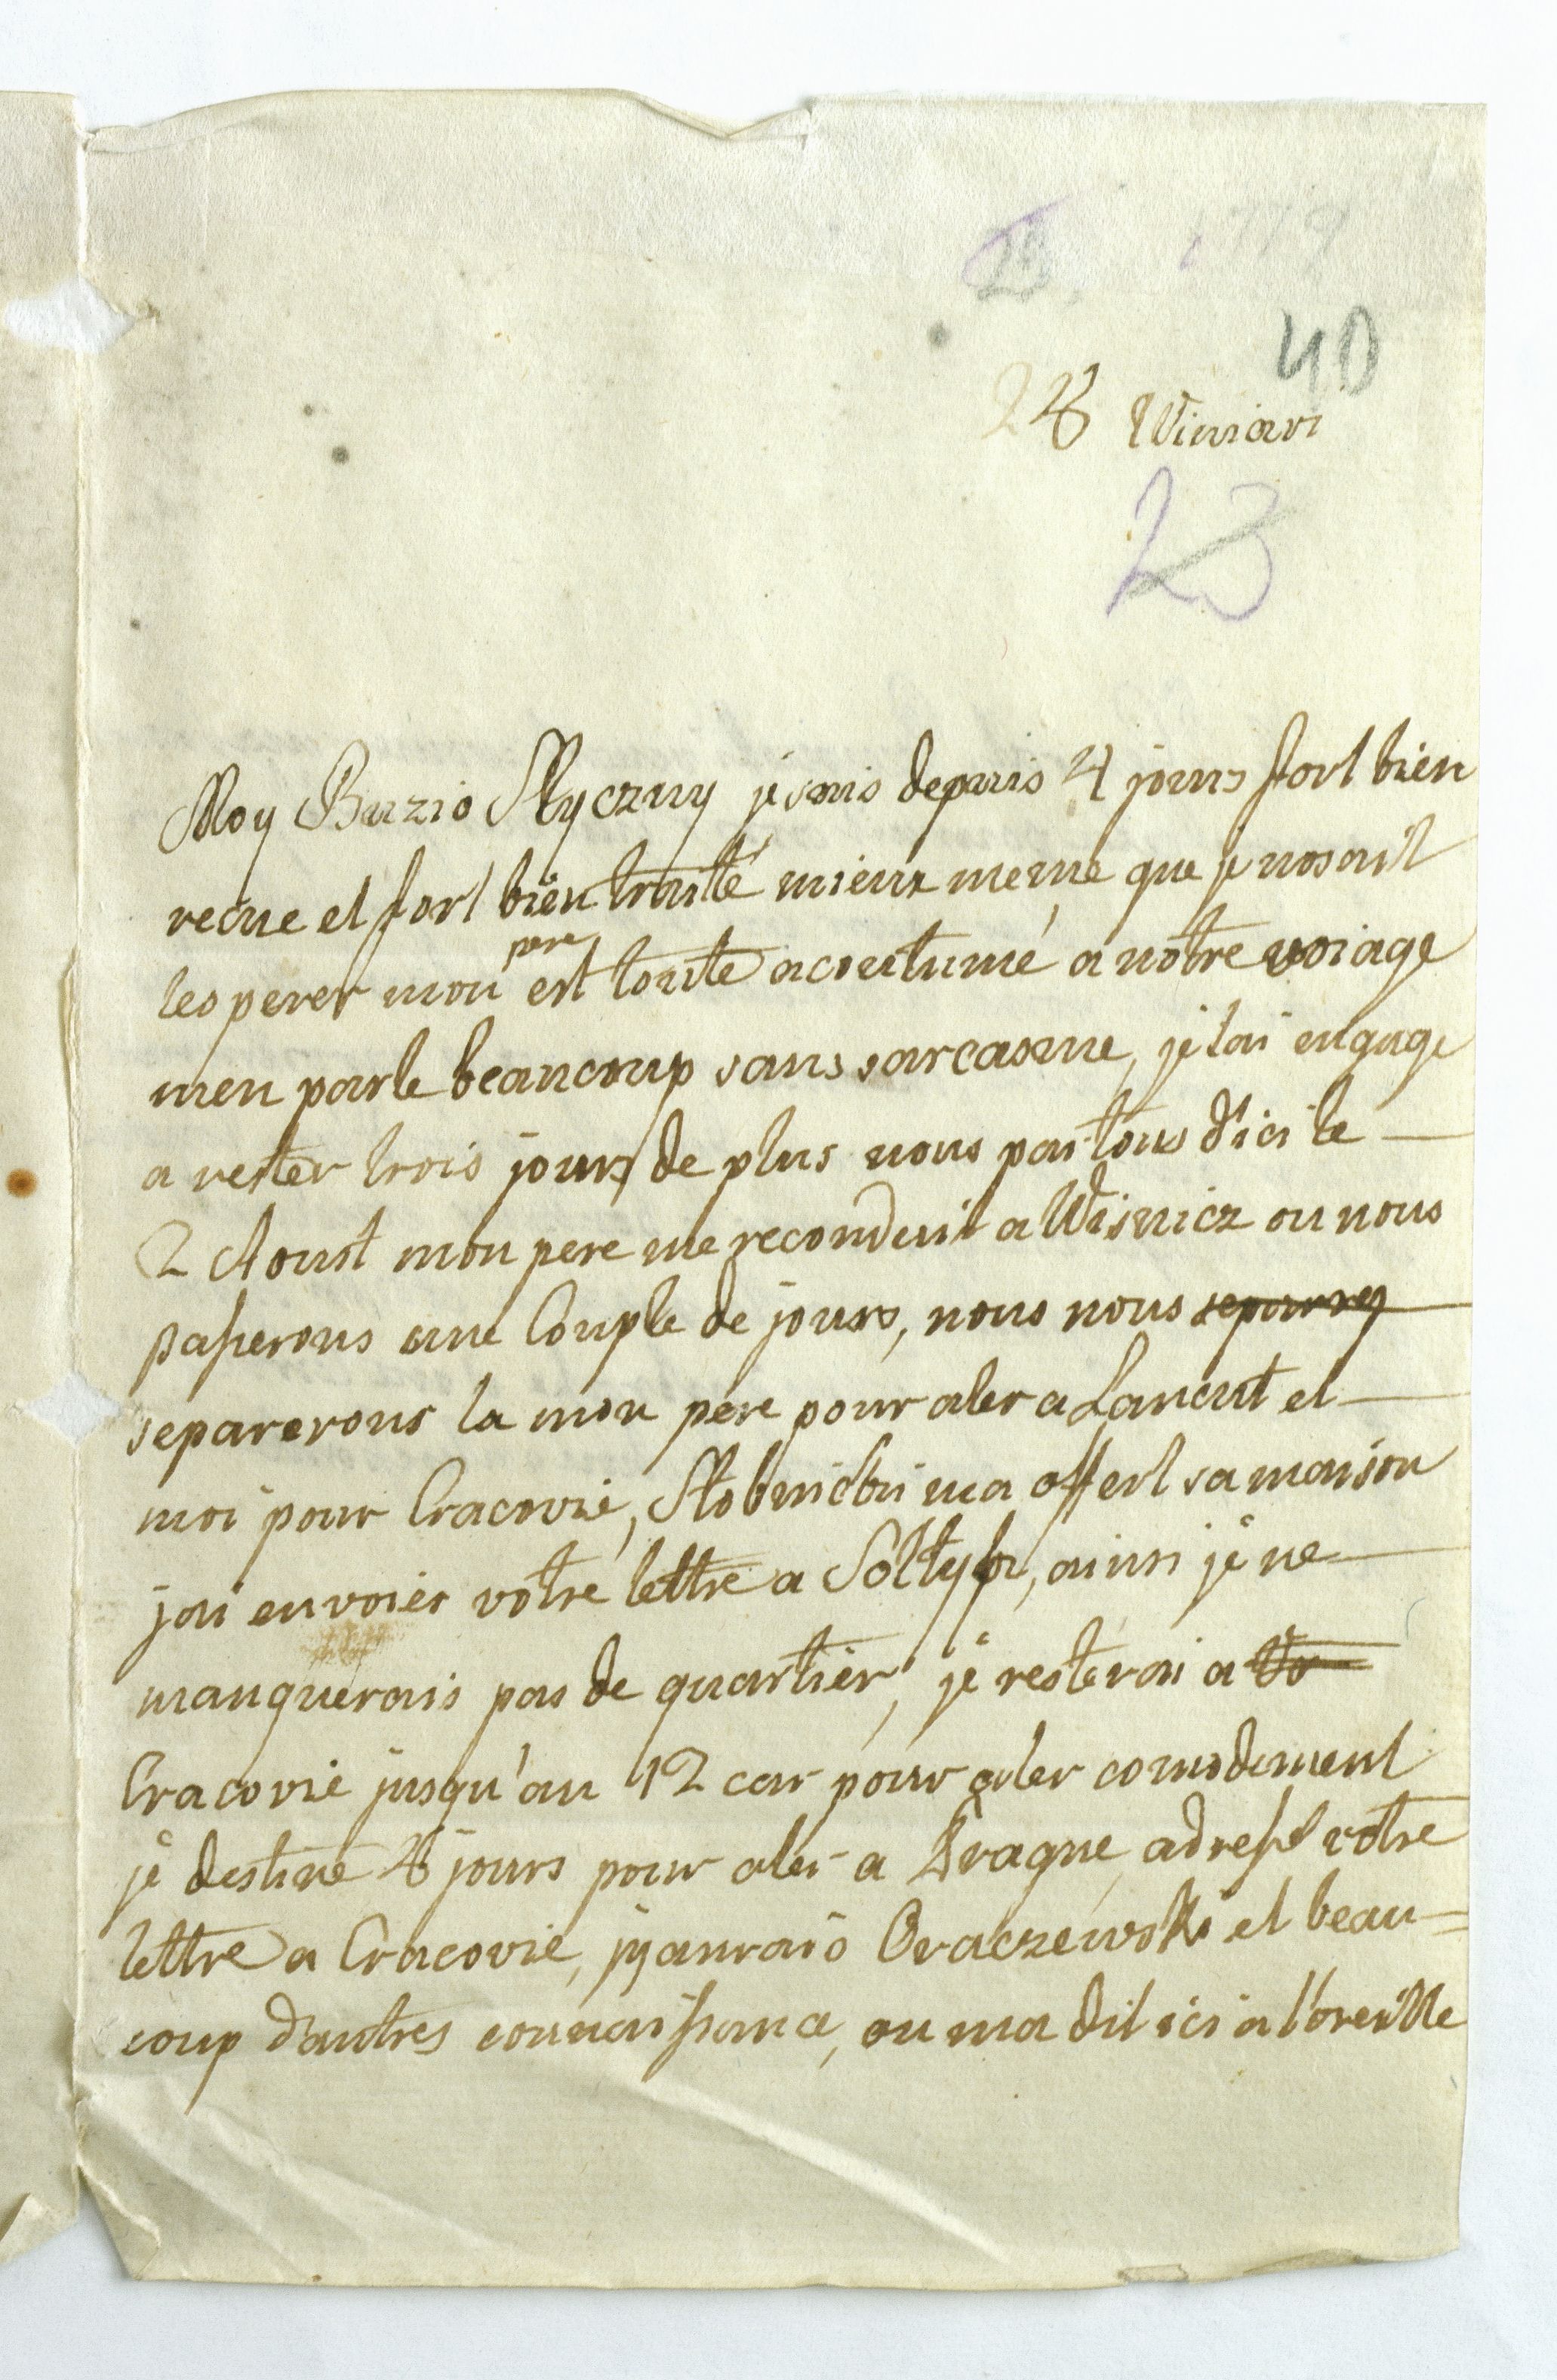 23, 1779
40
28 Winiari
23
Moy Buzio Slyczny je suis depuis 4 jours fort bien
recue et fort bien traité mieux meme que je nosait
lesperer mon pere est toute acoutumé a notre voiage
men parle beaucoup sans sarcasme, je lai engage
a rester trois jours de plus nous partons d'ici le
2 Aoust mon pere me reconduit a Wisnicz ou nous
passerons une Couple de jours, nous nous
separerons la mon pere pour aler a Lancut et
moi pour Cracovie, Slobnicki ma offert sa maison
jai envoier votre lettre a Soltyk, ainsi je ne
manquerais pas de quartier, je resterai a
Cracovie jusqu'au 12 car pour aler comodement
je destine 8 jours pour aler a Prague, adressé votre
lettre a Cracovie, jyaurais Oraczewski et beau=
coup d'autres connaissance, on ma dit ici a l'oreille